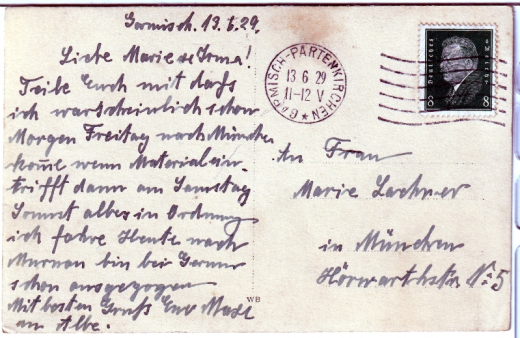 Garmisch. 13.6.29.
Liebe Marie u Irma!
Teile Euch mit dass
ich warscheinlich schon
Morgen Freitag nach München
kom̄e wenn Material ein-
trifft dann am Samstag
Sonnst alles in Ordnung
ich fahre Heute nach
Murnau bin bei
schon ausgezogen
Mit besten Gruß Euer
GARMISCH-PARTENKIRCHEN
13 6 29
11-12 V
Deutsches Reich
8 8
An Frau
Marie Lachner
in München
Hörwarthstr. No 5
WB